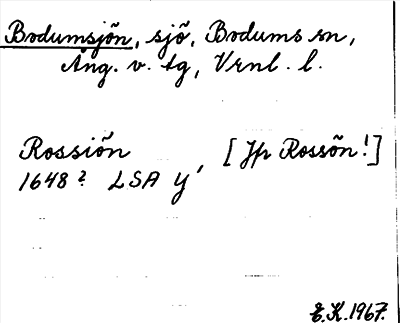 Bodumsjön, sjö, Bodums sn,
Ång. v. tg, Vrnl. l.
Rossiön, [Jfr Rossön!]
1648? LSA Y
E.K. 1967.